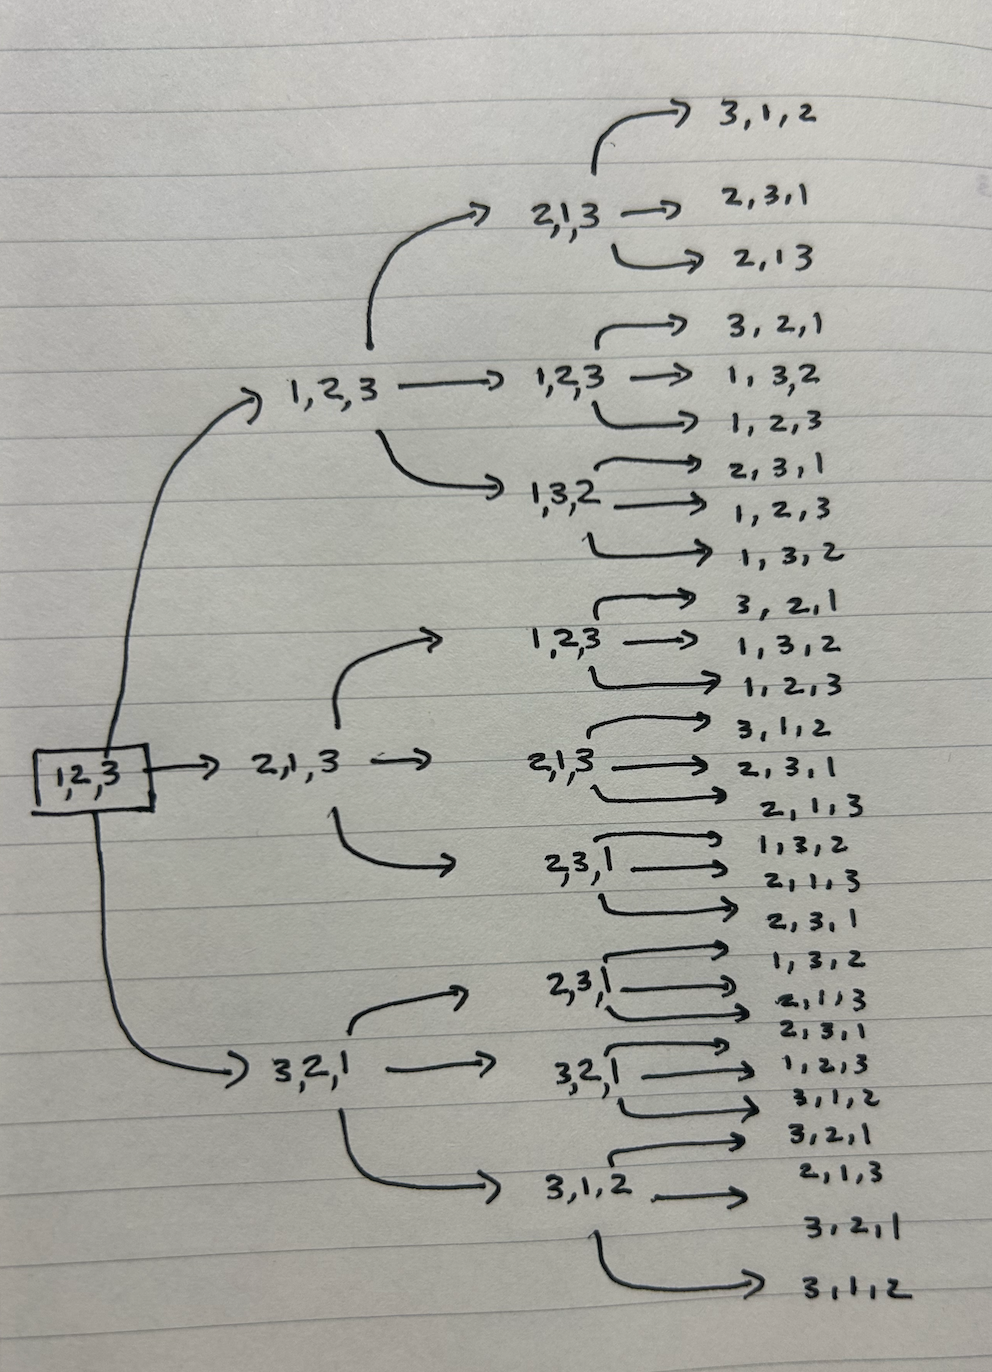 3,1,2
2,3,1
2,1,3
2,13
3,2,1
1,2,3
1,2,3
1,3,2
1,2,3
2,3,1
1,3,2
1,2,3
1,3,2
3,2,1
1,2,3
1,3,2
1,2,3
3,1,2
1,2,3
2,1,3
2,1,3
2,3,1
2,1,3
1,3,2
2,3,1
2,1,3
2,3,1
1,3,2
2,3,1
2,1,3
2,3,1
3,2,1
3,2,1
1,2,3
3,1,2
3,2,1
2,1,3
3,1,2
3,2,1
3,1,2